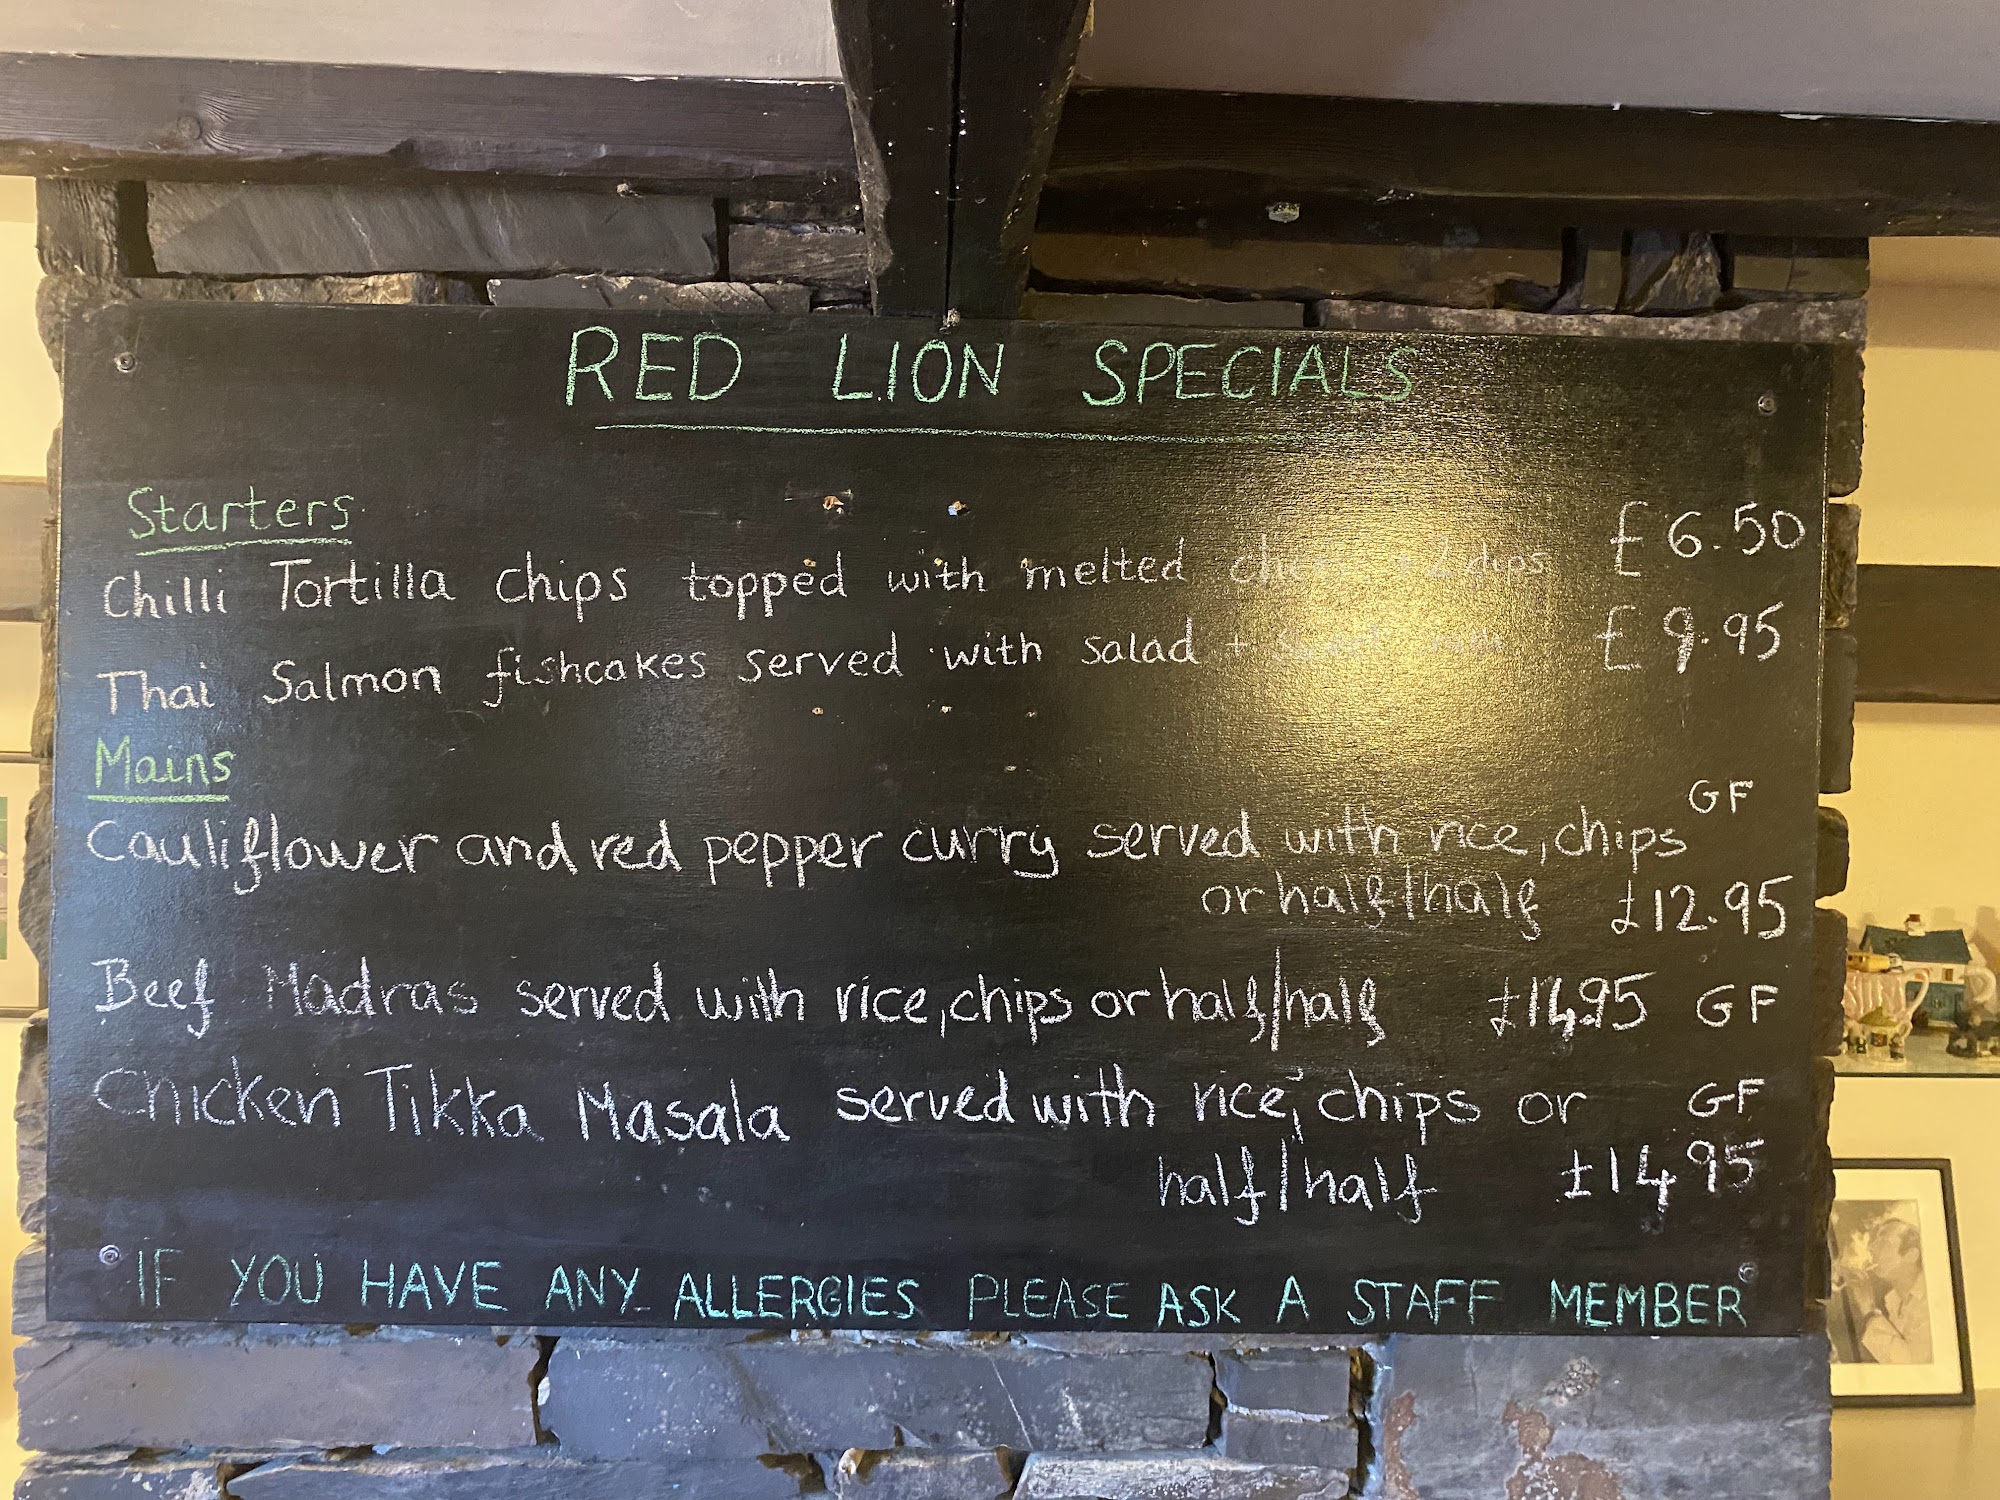 RED LION SPECIALS
Starters
Chilli Tortilla chips topped with melted + 2 dips £6.50
Thai Salmon fishcakes served with salad + £9.95
Mains
GF
Cauliflower and red pepper curry served with rice, chips
or half/half £12.95
Beef Madras served with rice, chips or half/half £14.95 GF
Chicken Tikka Masala served with rice, chips or GF
half/half £14.95
IF YOU HAVE ANY ALLERGIES PLEASE ASK A STAFF MEMBER